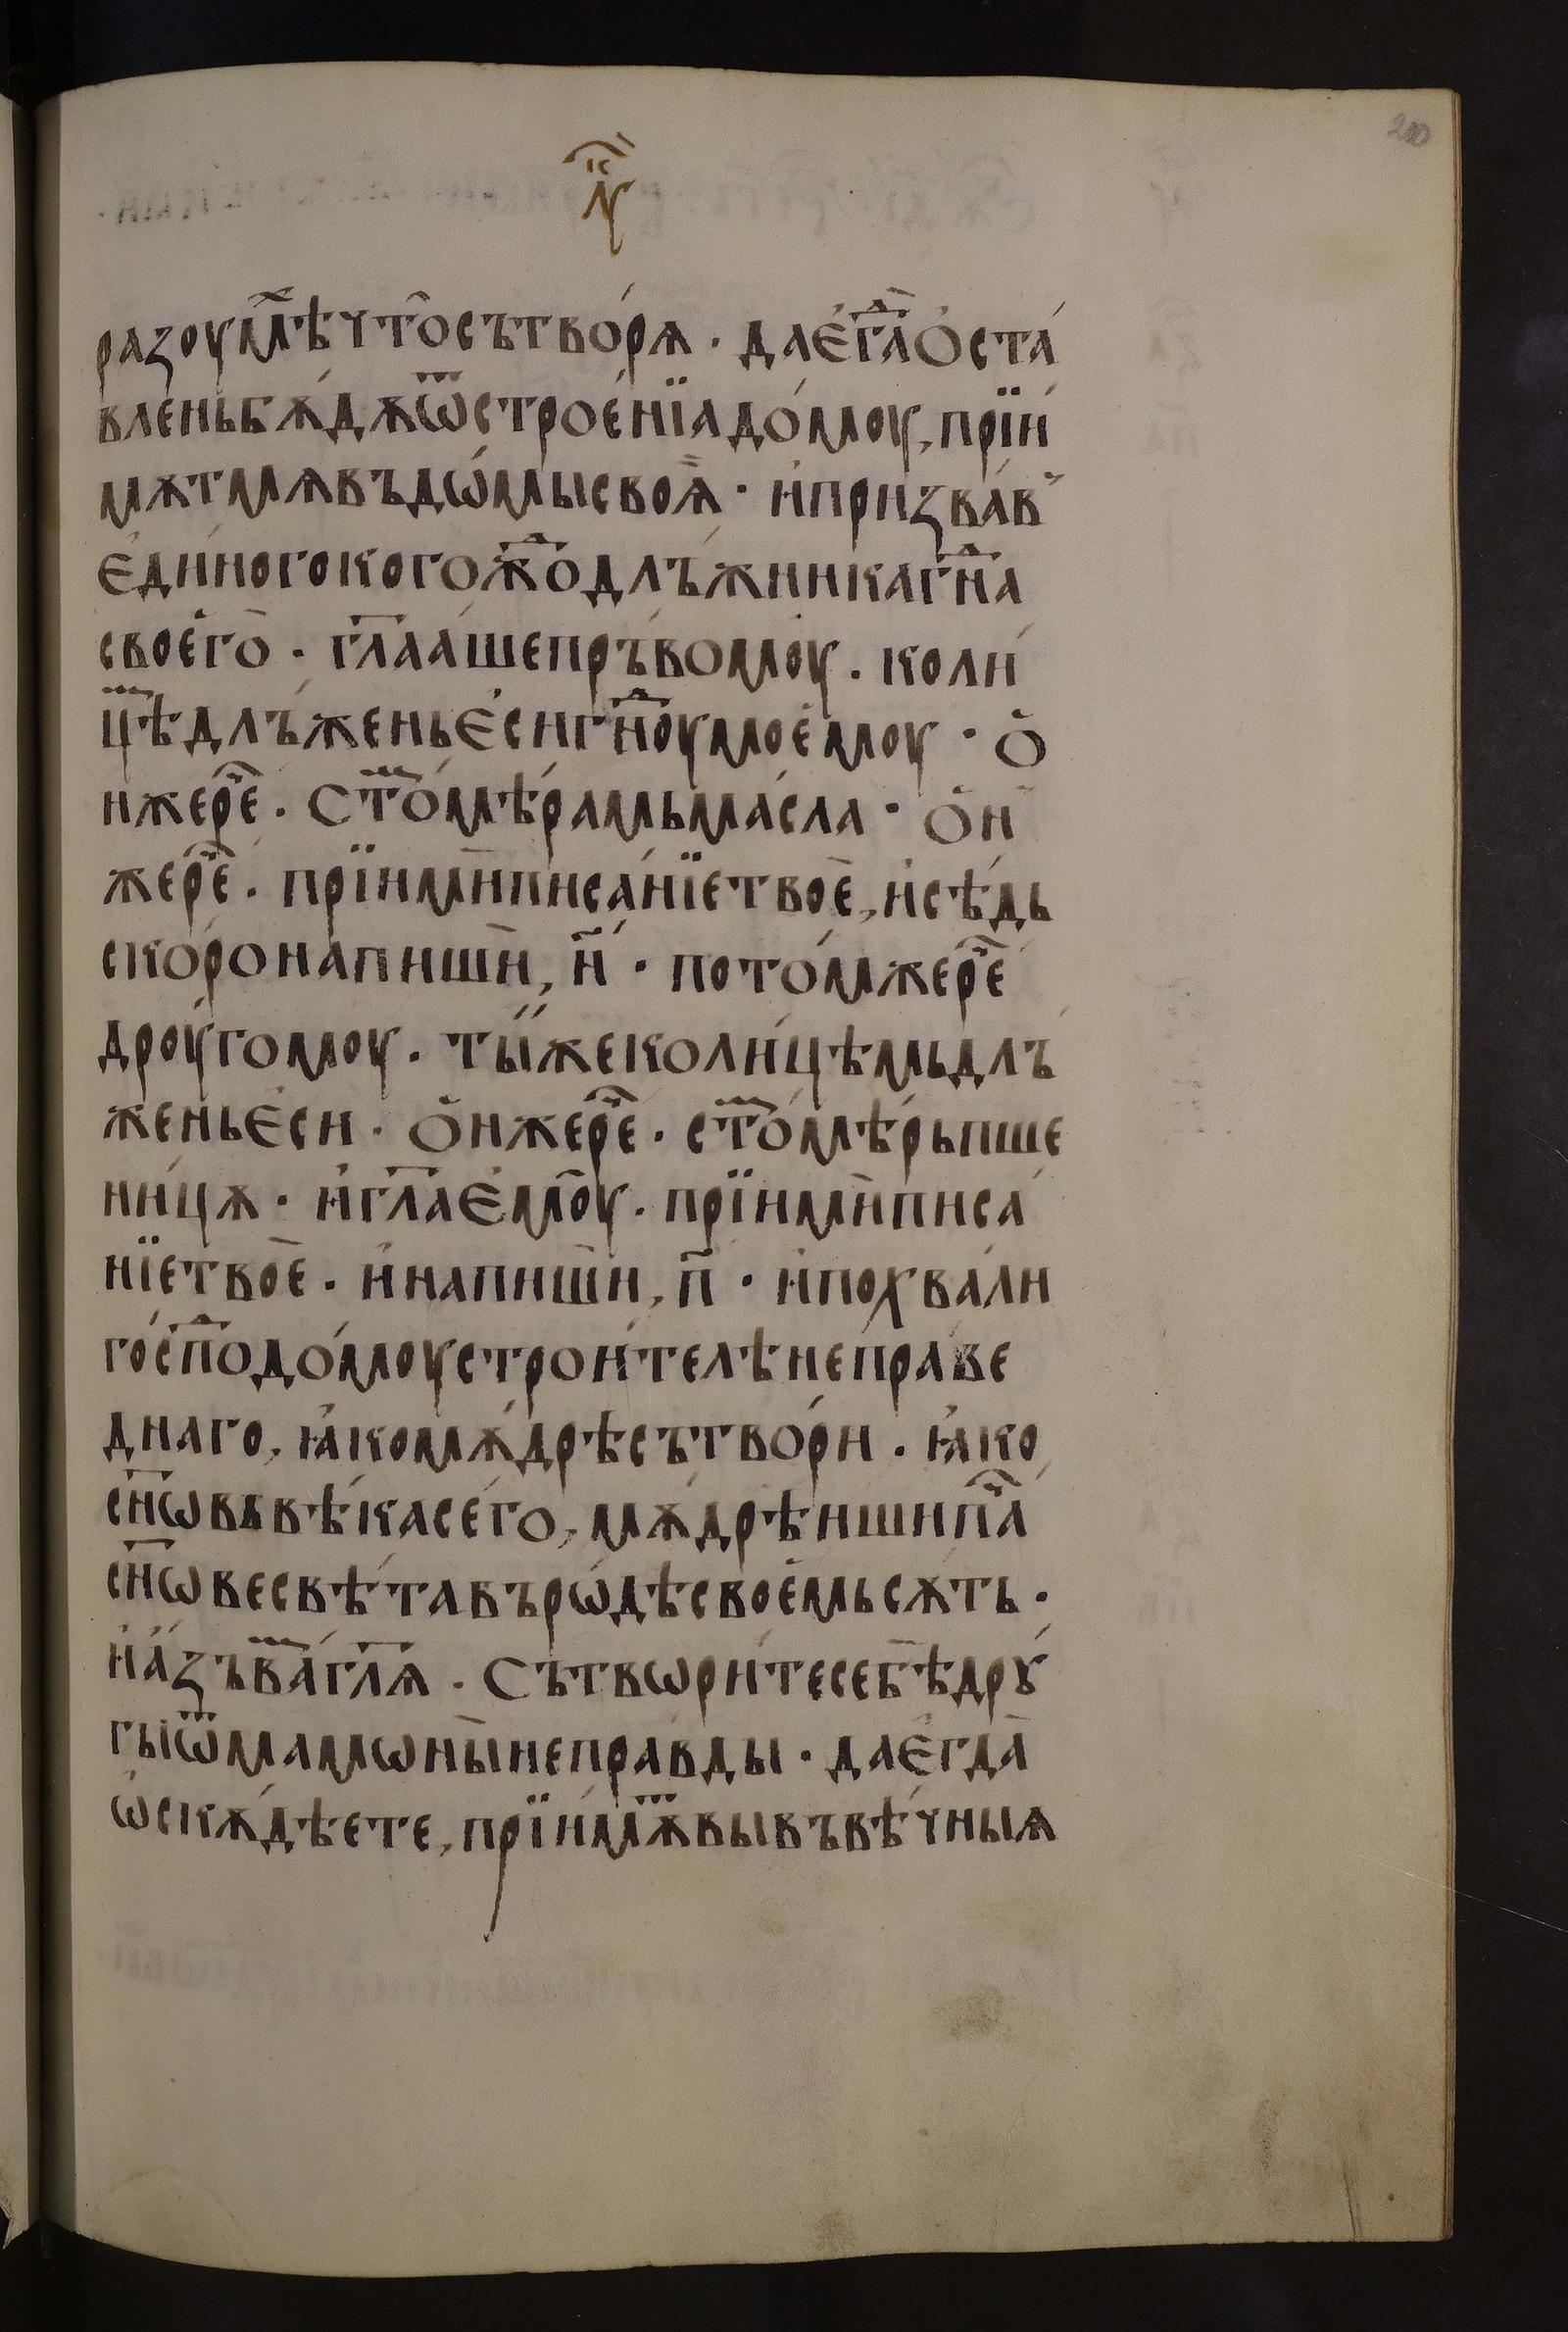 л҃ук
разоумⷯѣ что̑сътво́рѧ · даеⷣ҆гл҃а ѻ҆ста́
вле́ньбѫ́дѫѿстрое́нїадо́моу, прїи́
мѫтмѧвъдѡ́мысвоѧ̀ · и҆призва́в
є҆ди́ногокогожⷣодлъ́жникагн҃а
своего̀ · гл҃аа́шепръ́вомоу · коли́
цⷨѣдлъ́женьє҆сигн҃оумоемоу · ѻ҆
нжере́ⷱ · Стⷨо́мѣ́рамьма́сла · ѻ҆н
жере́ⷱ · прїимѝписа́нїетвоѐ, и҆сѣ́дь
ско́ронапишѝ, н҃ · пото́мжереⷱ
дроу́гомоу · ты́жеколи́цѣмьдлъ
женьє҆си · ѻ҆нжереⷱ · стⷨо́мѣ́рьпше
ни́цѫ · и҆гл҃ає҆мо́у · прїимѝписа́
нїетвоѐ · и҆напишѝ, п҃ · и҆похва́ли
го́спⷣодо́моустрои́телѣнепра́ве
днаго, ꙗ҆комѫ́дрѣсътво́ри · ꙗ҆ко
сн҃ѡвьвѣ́касего, мѫдрѣишипⷱа́
сн҃ѡвесвѣ́тавърѡ́дѣсвое́мьсѫть ·
и҆а́зъвⷨа́гл҃ѧ · Сътвѡри́тесебѣ̀дрꙋ́
гыѿмамѡны̀непра́вды · дає҆гда̀
ѡ҆скѫ́дѣете, прїи́мⷮѫвывъвѣ́чныѧ
200